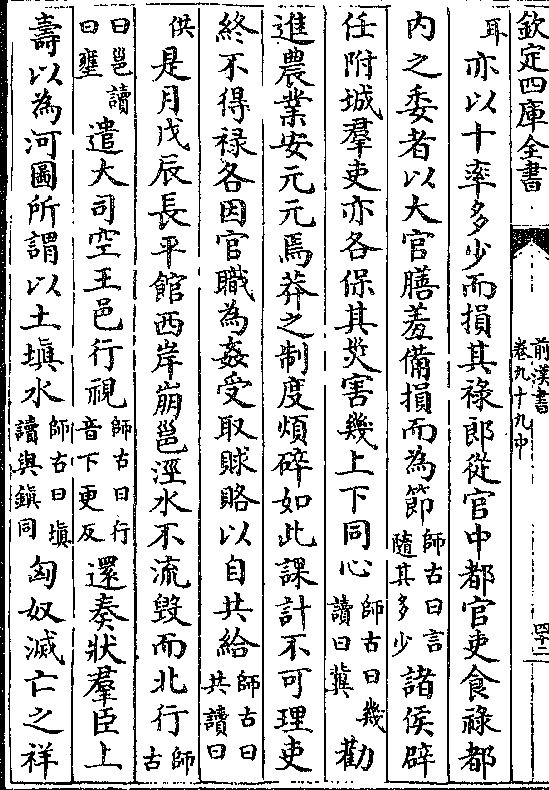 欽定四庫全書
前漢書
卷九十九中
四十二
耳亦以十率多少而損其祿郎從官中都官吏食祿都
内之委者以大官膳羞備損而為節師古曰言隨其多少諸侯辟
任附城羣吏亦各保其災害幾上下同心師古曰幾讀曰冀勸
進農業安元元焉莽之制度煩碎如此課計不可理吏
終不得祿各因官職為姦受取賕賂以自共給師古曰共讀曰
供是月戊辰長平館西岸崩邕涇水不流毀而北行師古
曰邕讀曰壅遣大司空王邑行視師古曰行音下更反還奏狀羣臣上
壽以為河圖所謂以土塡水師古曰塡讀與鎭同匈奴滅亡之祥